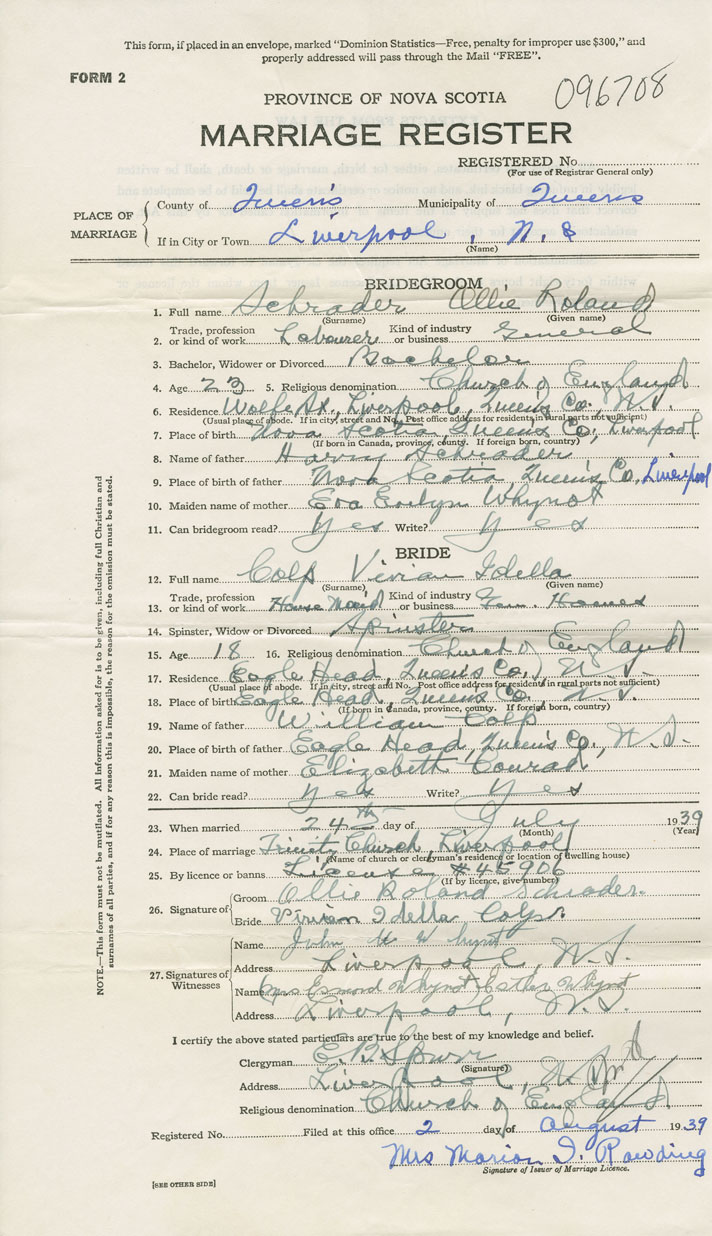 This form, if placed in an envelope, marked "Dominion Statistics—Free, penalty for improper use $300," and
properly addressed will pass through the Mail "FREE".
FORM 2
096708
PROVINCE OF NOVA SCOTIA
MARRIAGE REGISTER
REGISTERED No.
(For use of Registrar General only)
PLACE OF MARRIAGE
County of Queen's Municipality of Queens
If in City or Town Liverpool, N. S
(Name)
BRIDEGROOM
1. Full name Schrader Ollie Roland
(Surname) (Given name)
2. Trade, profession or kind of work Labourer Kind of industry or business General
3. Bachelor, Widower or Divorced Bachelor
4. Age 23 5. Religious denomination Church of England
6. Residence Liverpool, Queen's Co., N.S.
(Usual place of abode. If in city, street and No. Post office address for residents in rural parts not sufficient)
7. Place of birth Nova Scotia, Queens Co., Liverpool
(If born in Canada, province, county. If foreign born, country)
8. Name of father Harry Schrader
9. Place of birth of father Nova Scotia, Queen's Co. Liverpool
10. Maiden name of mother Eva Evelyn Whynot
11. Can bridegroom read? Yes Write? Yes
BRIDE
12. Full name Colp Vivian Idella
(Surname) (Given name)
13. Trade, profession or kind of work House Maid Kind of industry or business Gen. Homes
14. Spinster, Widow or Divorced Spinster
15. Age 18 16. Religious denomination Church of England
17. Residence Eagle Head, Queen's Co., N.S.
(Usual place of abode. If in city, street and No. Post office address for residents in rural parts not sufficient)
18. Place of birth Eagle Head, Queen's Co. N.S.
(If born in Canada, province, county. If foreign born, country)
19. Name of father William Colp
20. Place of birth of father Eagle Head, Queen's Co., N.S.
21. Maiden name of mother Elizabeth Conrad
22. Can bride read? Yes Write? Yes
23. When married 24th day of July 1939
(Month) (Year)
24. Place of marriage Trinity Church, Liverpool
(Name of church or clergyman's residence or location of dwelling house)
25. By licence or banns License #45906
(If by licence, give number)
26. Signature of
Groom Ollie Roland Schrader.
Bride Vivian Idella Colp.
27. Signatures of Witnesses
Name John Whynot
Address Liverpool, N.S.
Name Mrs Esmond Whynot Esther Whynot
Address Liverpool, N.S.
I certify the above stated particulars are true to the best of my knowledge and belief.
Clergyman E. B. Spurr
(Signature)
Address Liverpool, N.S.
Religious denomination Church of England
Registered No. Filed at this office 2 day of August 1939
Mrs Marion I. Rawding
Signature of Issuer of Marriage Licence.
[SEE OTHER SIDE]
NOTE.—This form must not be mutilated. All information asked for is to be given, including full Christian and
surnames of all parties, and if for any reason this is impossible, the reason for the omission must be stated.